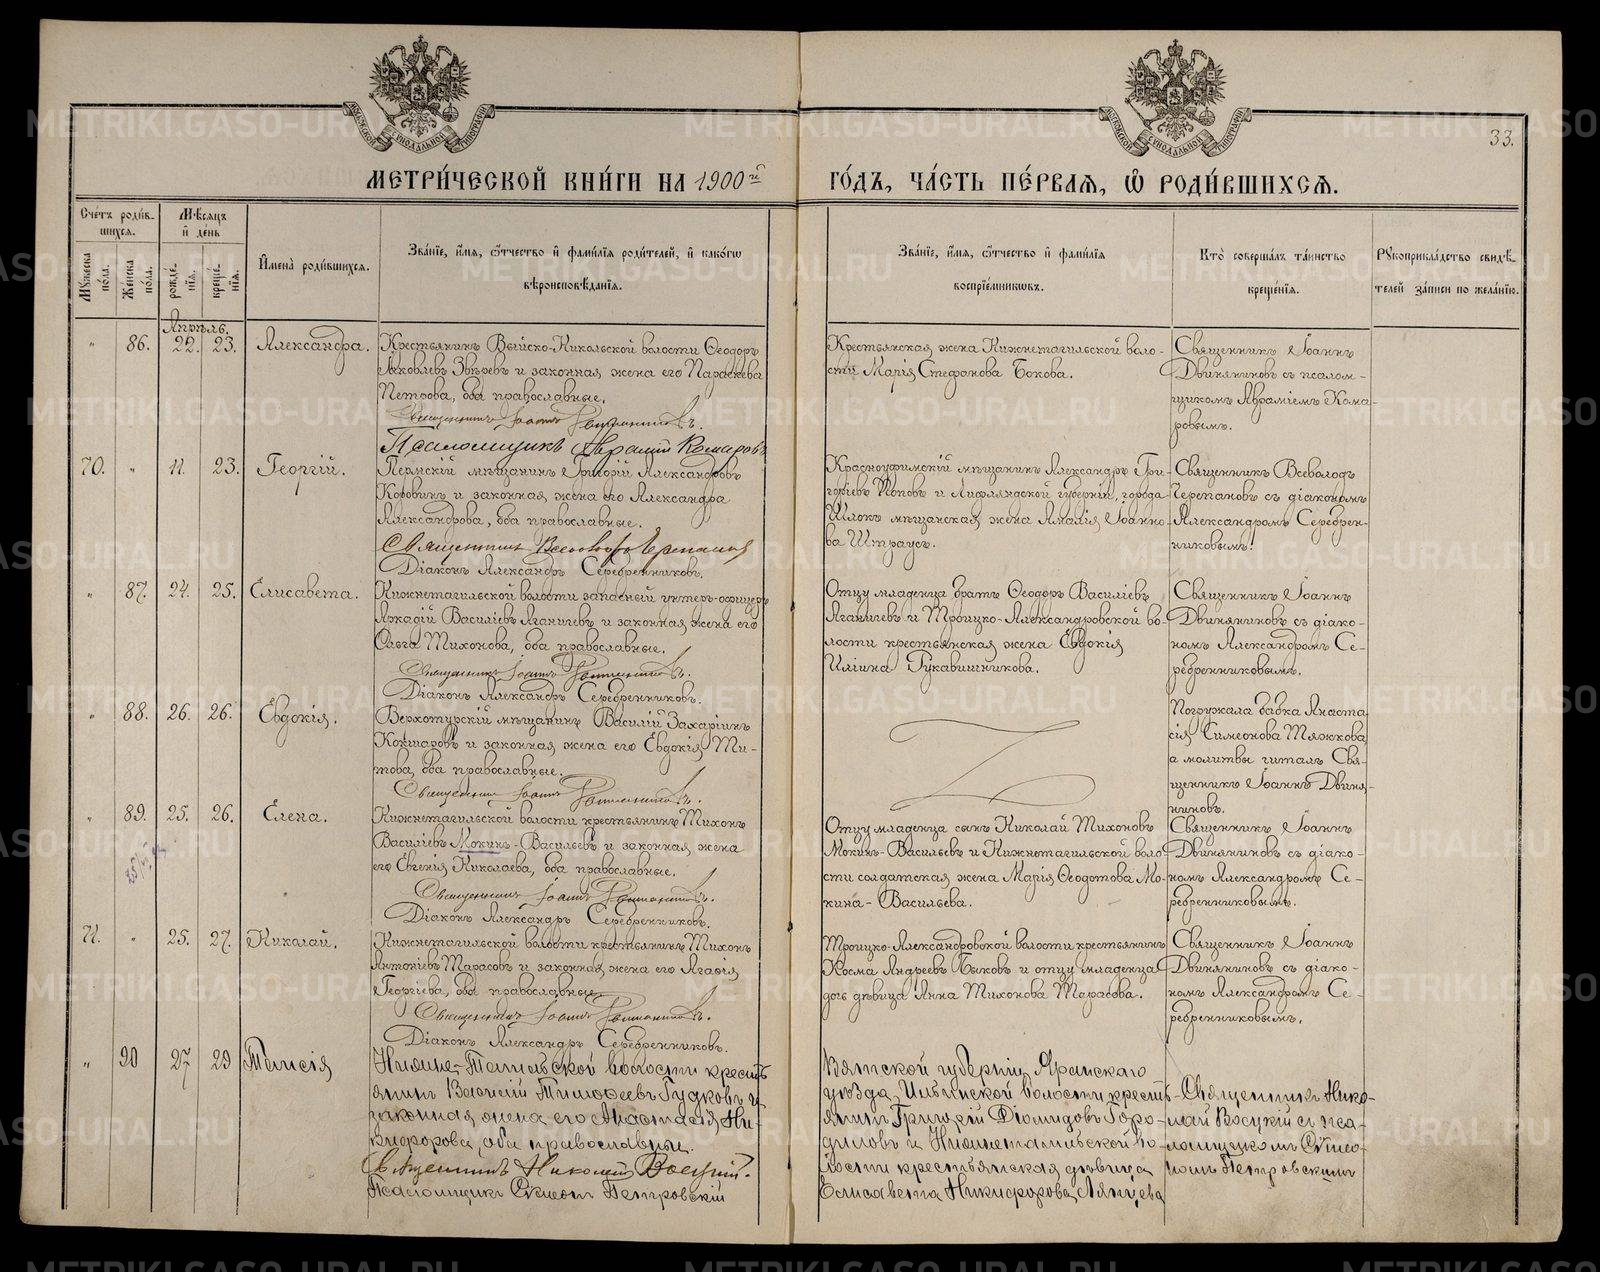 33.
МЕТРИ́ЧЕСКОЙ КНИ́ГИ НА 1900й ГО́ДЪ, ЧА́СТЬ ПЕ́РВАѦ, Ѡ҆ РОДИ́ВШИХСѦ.
Сче́тъ роди́в-
шихсѧ.
Мꙋ́жеска по́ла.
Же́нска по́ла.
Мѣ́сѧцъ и҆ де́нь
рожде́нїѧ.
креще́нїѧ.
И҆мена̀ роди́вшихсѧ.
Зва́нїе, и҆́мѧ, ѻ҆́тчество и҆ фами́лїѧ роди́телей, и҆ како́гѡ
вѣроисповѣ́данїѧ.
Зва́нїе, и҆́мѧ, ѻ҆́тчество и҆ фами́лїѧ
воспрїе́мникѡвъ.
Кто̀ соверша́лъ та́инство
креще́нїѧ.
Рꙋкоприкла́дство свидѣ́-
телей за́писи по жела́нїю.
Апрѣль.
" 86. 22. 23. Александра.
Крестьянинъ Выйско-Никольской волости Ѳеодоръ
Яковлевъ Звѣревъ и законная жена его Параскева
Петрова, оба православные.
Священникъ Іоаннъ Двиняниновъ.
Псаломщикъ Аврамій Комаровъ
Крестьянская жена Нижнетагильской воло-
сти Марія Стефанова Бокова.
Священникъ Іоаннъ
Двиняниновъ съ псалом-
щикомъ Авраміемъ Кома-
ровымъ.
70. " 11. 23. Георгій.
Пермскій мѣщанинъ Григорій Александровъ
Коровинъ и законная жена его Александра
Александрова, оба православные.
Священникъ Всеволодъ Черепановъ
Діаконъ Александръ Серебренниковъ.
Красноуфимскій мѣщанинъ Александръ Гри-
горіевъ Поповъ и Лифляндской губерніи, города
Шлокъ мѣщанская жена Амалія Іоанно-
ва Штраусъ.
Священникъ Всеволодъ
Черепановъ съ діакономъ
Александромъ Серебрен-
никовымъ.
" 87. 24. 25. Елисавета.
Нижнетагильской волости запасный унтеръ-офицеръ
Аркадій Василіевъ Яганичевъ и законная жена его
Ольга Тихонова, оба православные.
Священникъ Іоаннъ Двиняниновъ.
Діаконъ Александръ Серебренниковъ.
Отцу младенца братъ Ѳеодоръ Василіевъ
Яганичевъ и Троицко-Александровской во-
лости крестьянская жена Евдокія
Иліина Рукавишникова.
Священникъ Іоаннъ
Двиняниновъ съ діако-
номъ Александромъ Се-
ребренниковымъ.
" 88. 26. 26. Евдокія.
Верхотурскій мѣщанинъ Василій Захаріинъ
Кокшаровъ и законная жена его Евдокія Ти-
това, оба православные.
Священникъ Іоаннъ Двиняниновъ.
Погружала бабка Анаста-
сія Симеонова Тяжкова,
а молитвы читалъ Свя-
щенникъ Іоаннъ Двиня-
ниновъ.
" 89. 25. 26. Елена.
Нижнетагильской волости крестьянинъ Тихонъ
Василіевъ Мокинъ-Васильевъ и законная жена
его Евгенія Николаева, оба православные.
Священникъ Іоаннъ Двиняниновъ.
Діаконъ Александръ Серебренниковъ.
Отцу младенца сынъ Николай Тихоновъ
Мокинъ-Васильевъ и Нижнетагильской воло-
сти солдатская жена Марія Ѳеодотова Мо-
кина-Васильева.
Священникъ Іоаннъ
Двиняниновъ съ діако-
номъ Александромъ Се-
ребренниковымъ.
71. " 25. 27. Николай.
Нижнетагильской волости крестьянинъ Тихонъ
Антоніевъ Тарасовъ и законная жена его Агафія
Георгіева, оба православные.
Священникъ Іоаннъ Двиняниновъ.
Діаконъ Александръ Серебренниковъ.
Троицко-Александровской волости крестьянинъ
Косма Андреевъ Быковъ и отцу младенца
дочь дѣвица Анна Тихонова Тарасова.
Священникъ Іоаннъ
Двиняниновъ съ діако-
номъ Александромъ Се-
ребренниковымъ.
" 90 27 29 Таисія
Нижне-Тагильской волости кресть
янинъ Василій Тимофеевъ Гудковъ и
законная жена его Анастасія Ни-
кифорова, оба православные.
Священникъ Николай Восуцкій.
Псаломщикъ Петровскій
Вятской губерніи, Яранскаго
уѣзда, Ильинской волости кресть-
янинъ Григорій Діомидовъ Горо-
диловъ и Нижнетагильской во-
лости крестьянская дѣвица
Елисавета Никифорова Ляпцева
Священникъ Нико-
лай съ пса-
ломщикомъ
Петровскимъ
METRIKI.GASO-URAL.RU